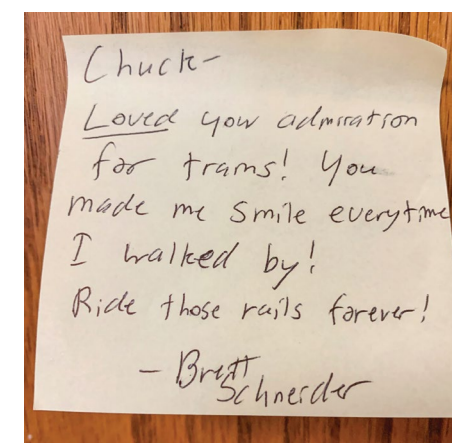 Chuck-
Loved your admiration
for trains! You
made me smile everytime
I walked by!
Ride those rails forever!
- Brett
Schneider